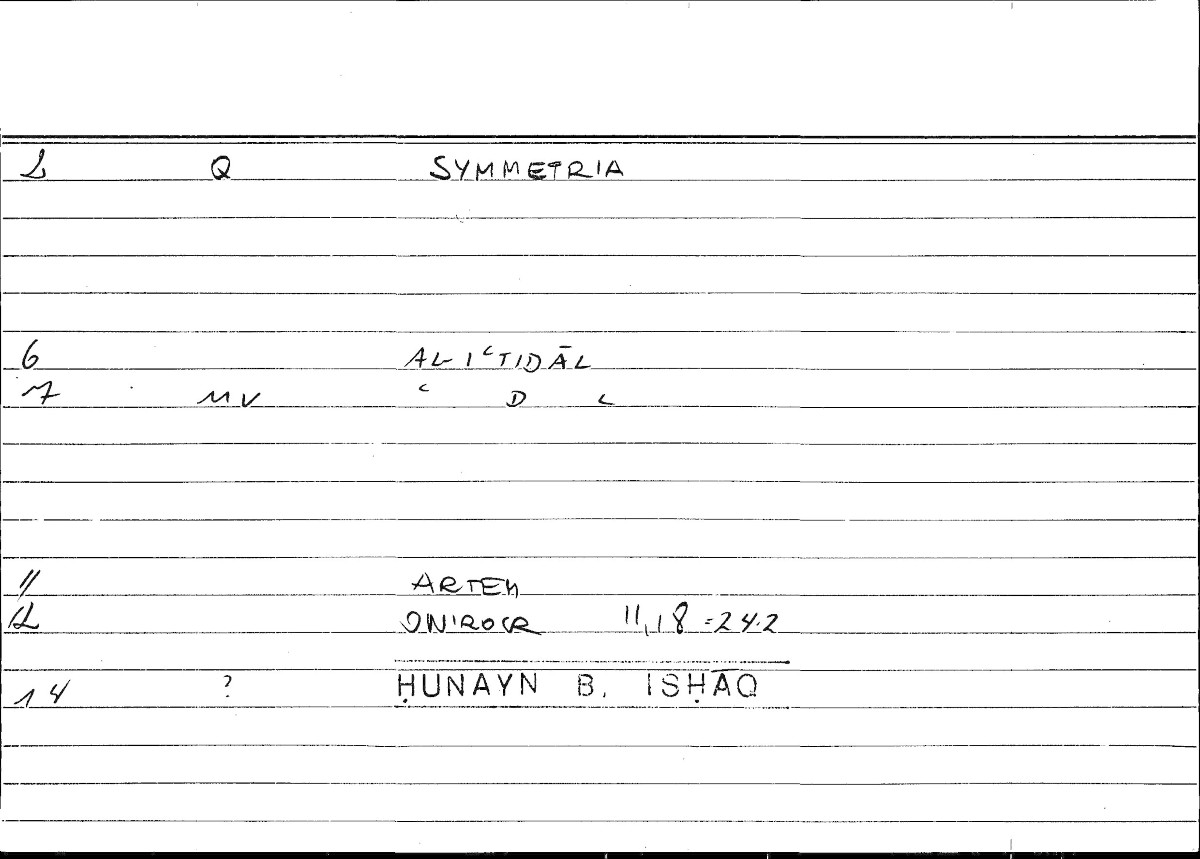 2 Q SYMMETRIA
6 AL-IʿTIDĀL
7 MV ʿ D L
11 ARTEM
12 ONIROCR 11,18 = 24.2
14 ? ḤUNAYN B. ISḤĀQ